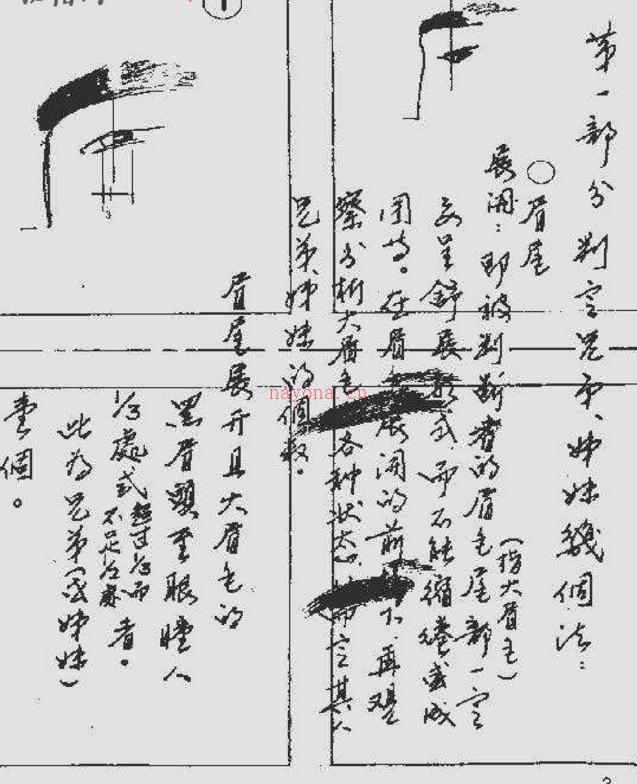 第一部分 判定兄弟、姊妹几個法：
○眉尾
展開：即被判斷者的眉毛尾部一定
（指大眉毛）
要呈舒展形式，而不能縮捲或成
團時。在眉 展開的前 下，再觀
察分析大眉毛 各种状态， 而定其人
兄弟、姊妹的個数。
眉尾展开且大眉毛的
黑眉頭至眼瞳人
1/3處或超过1/3而不足1/2處者。
此为兄弟（或姊妹）
壹個。
1
3
nayona.cn